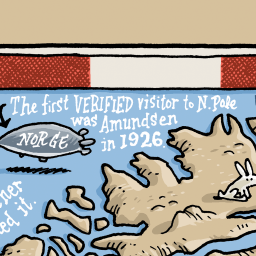 The first VERIFIED visitor to N. Pole
was Amundsen
in 1926.
NORGE
it.